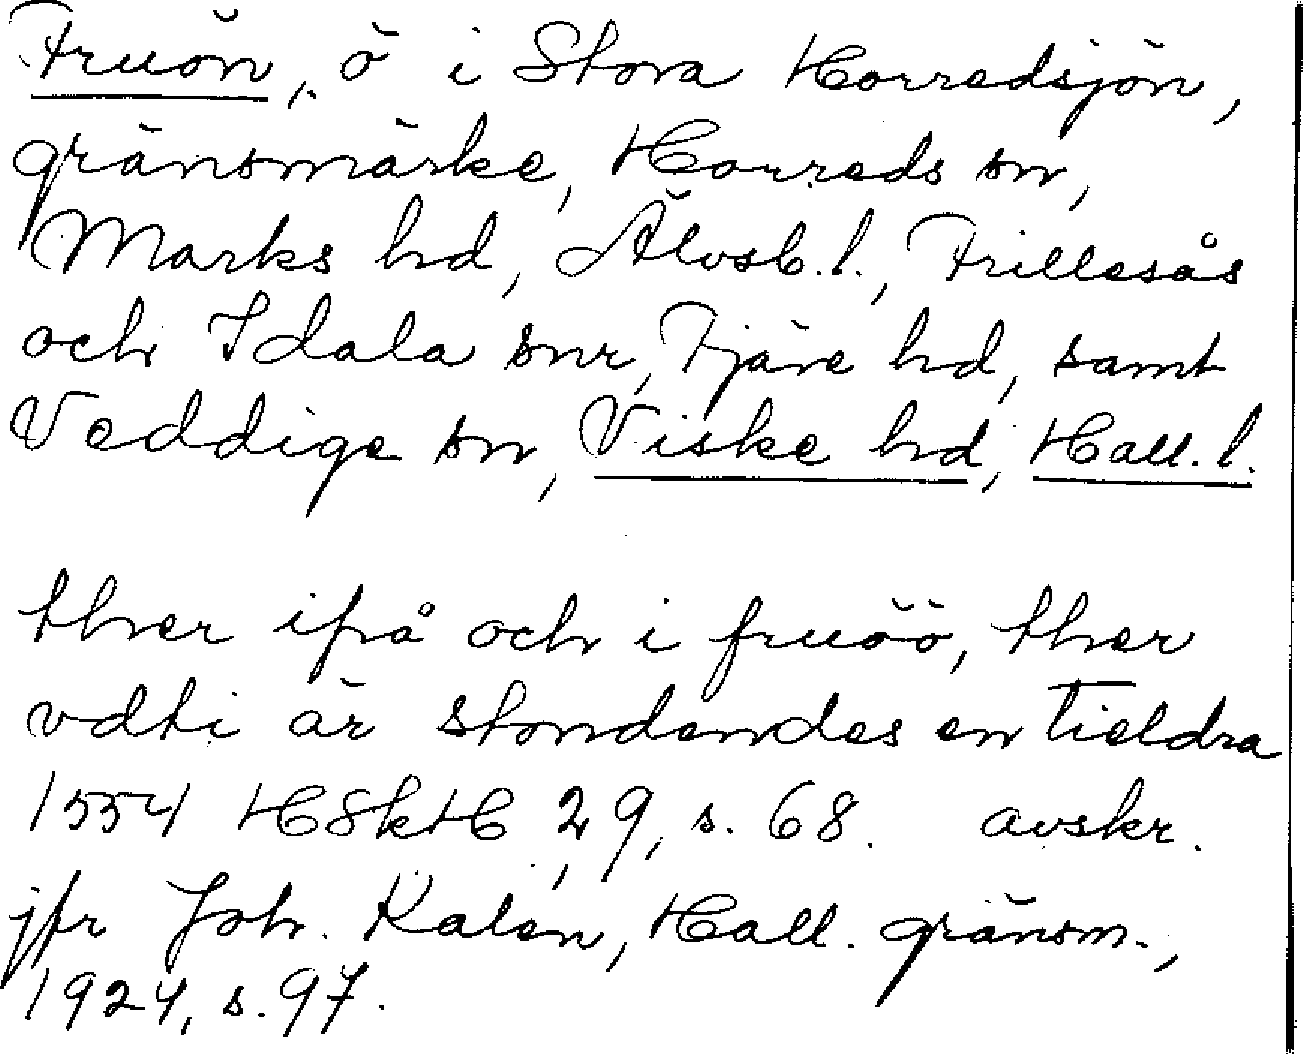 Fruön, ö i Stora Horredsjön,
gränsmärke, Horreds sn,
Marks hd, Älvsb. l., Frillesås
och Idala snr, Fjäre hd, samt
Veddige sn, Viske hd, Hall. l.
ther ifrå och i fruöö, ther
vdti är stondendes en tieldra
1554 HSkH, 29, s. 68. avskr.
jfr Joh. Kalén, Hall. gränsm.,
1924, s. 97.